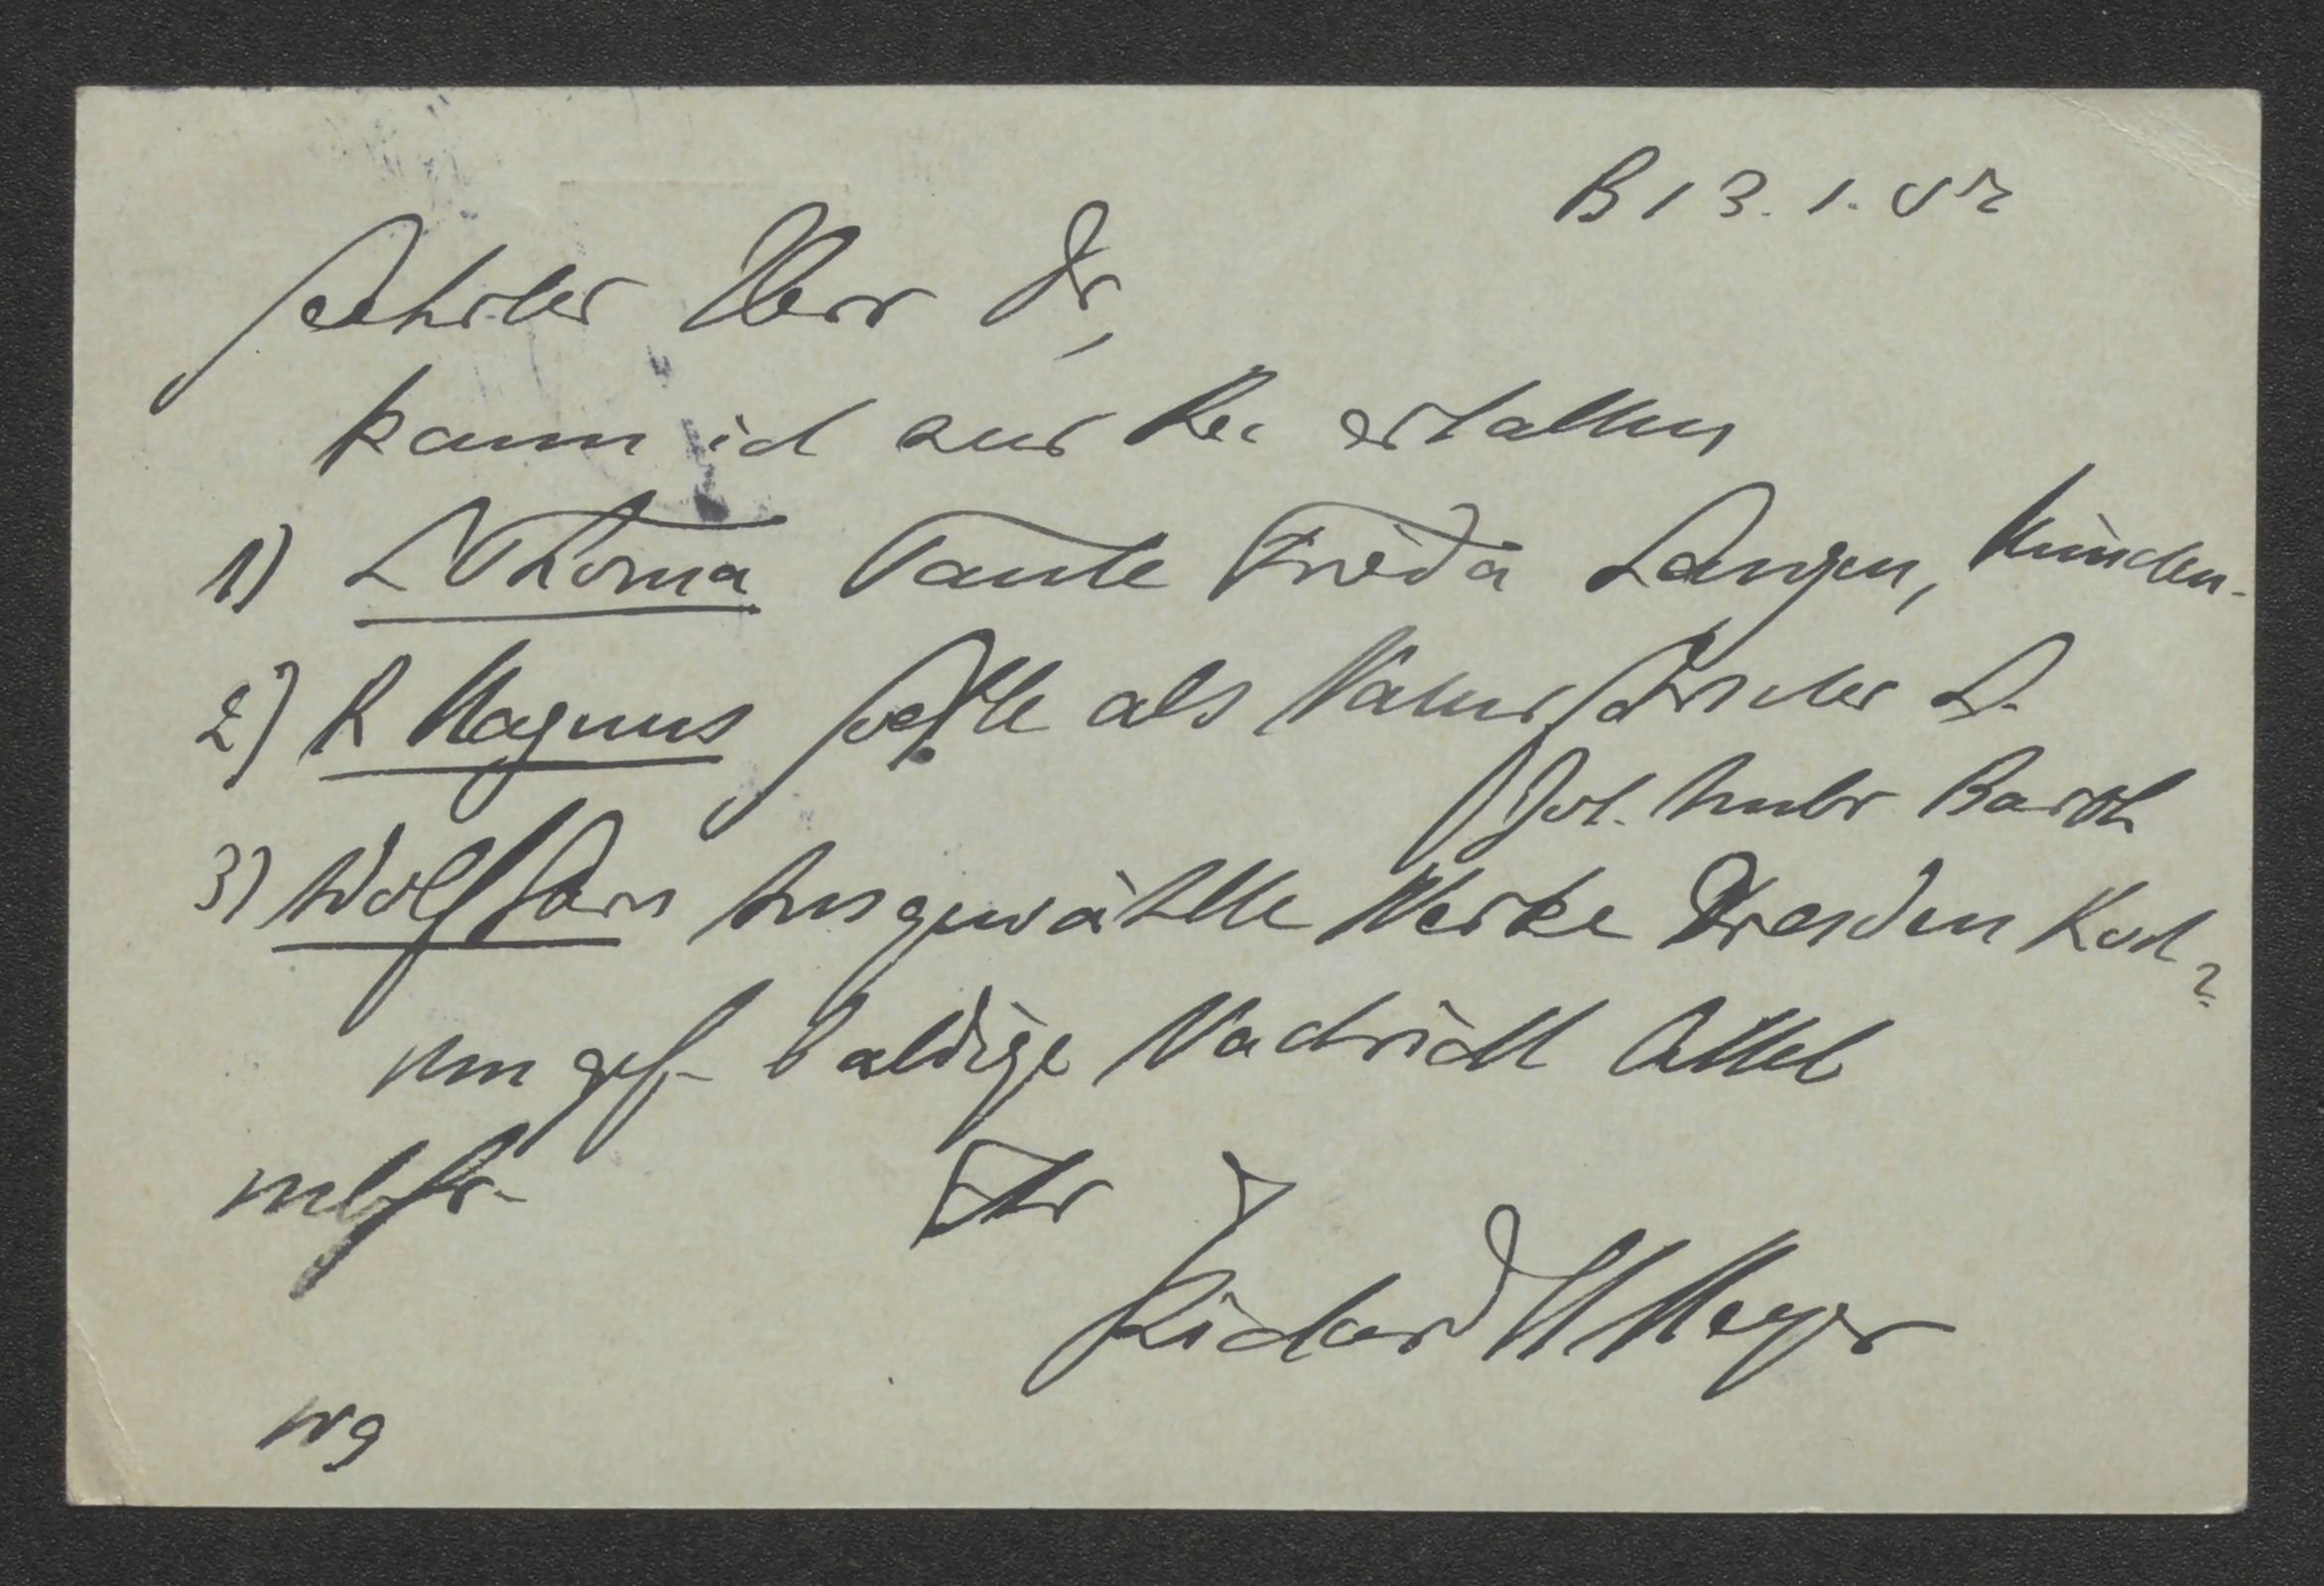 B 13. 1. 07
Geehrter Herr Dr,
kann ich zur Rec erhalten
1) L Thoma Tante Frieda Langen, München.
2) R Magnus Goethe als Naturforscher L.
Joh. Ambr Barth
3) Wolfssohn Ausgewählte Werke Dresden Koch?
Um gef. baldige Nachricht bittet
Ihr
Richard M Meyer